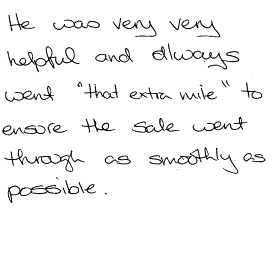 He was very very
helpful and always
went "that extra mile" to
ensure the sale went
through as smoothly as
possible.